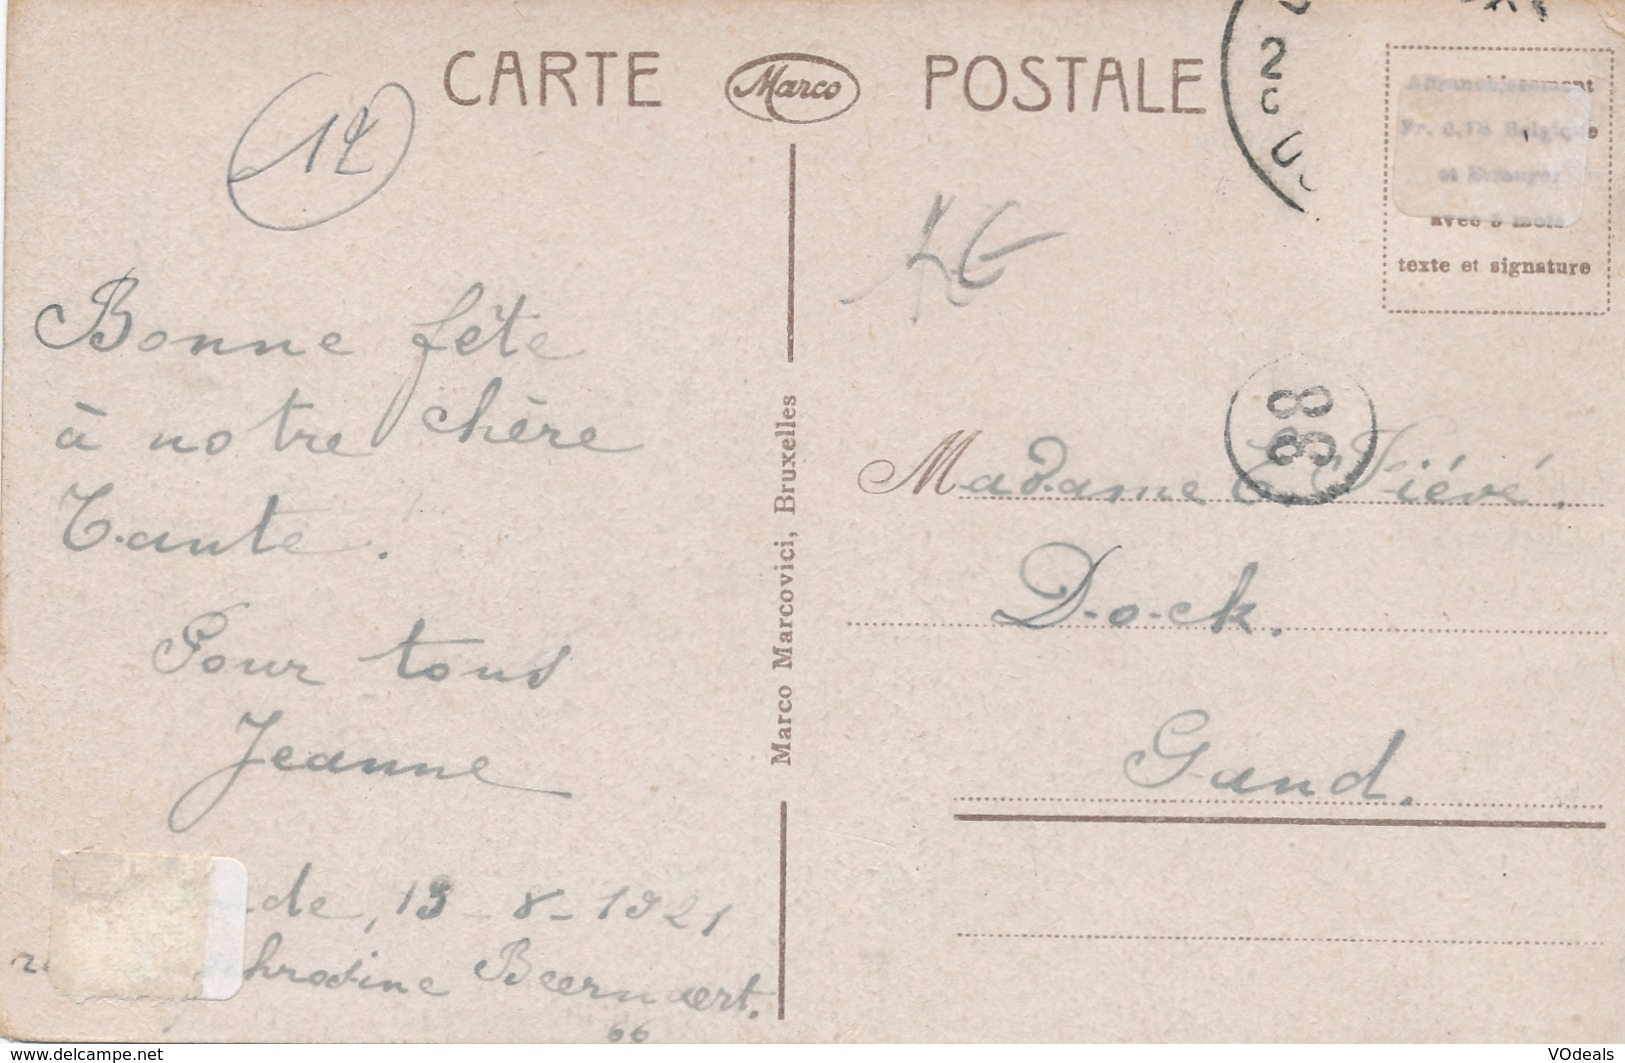 CARTE Marco POSTALE
12
Affranchissement
Fr. 0,15 Belgique
et Etranger
avec 5 mots
texte et signature
Bonne fête
à notre chère
Tante.
Pour tous
Jeanne
de, 13-8-1921
Beernaert.
66
Marco Marcovici, Bruxelles
88
Madame E. Fiévé.
Dock.
Gand.
www.delcampe.net
VOdeals